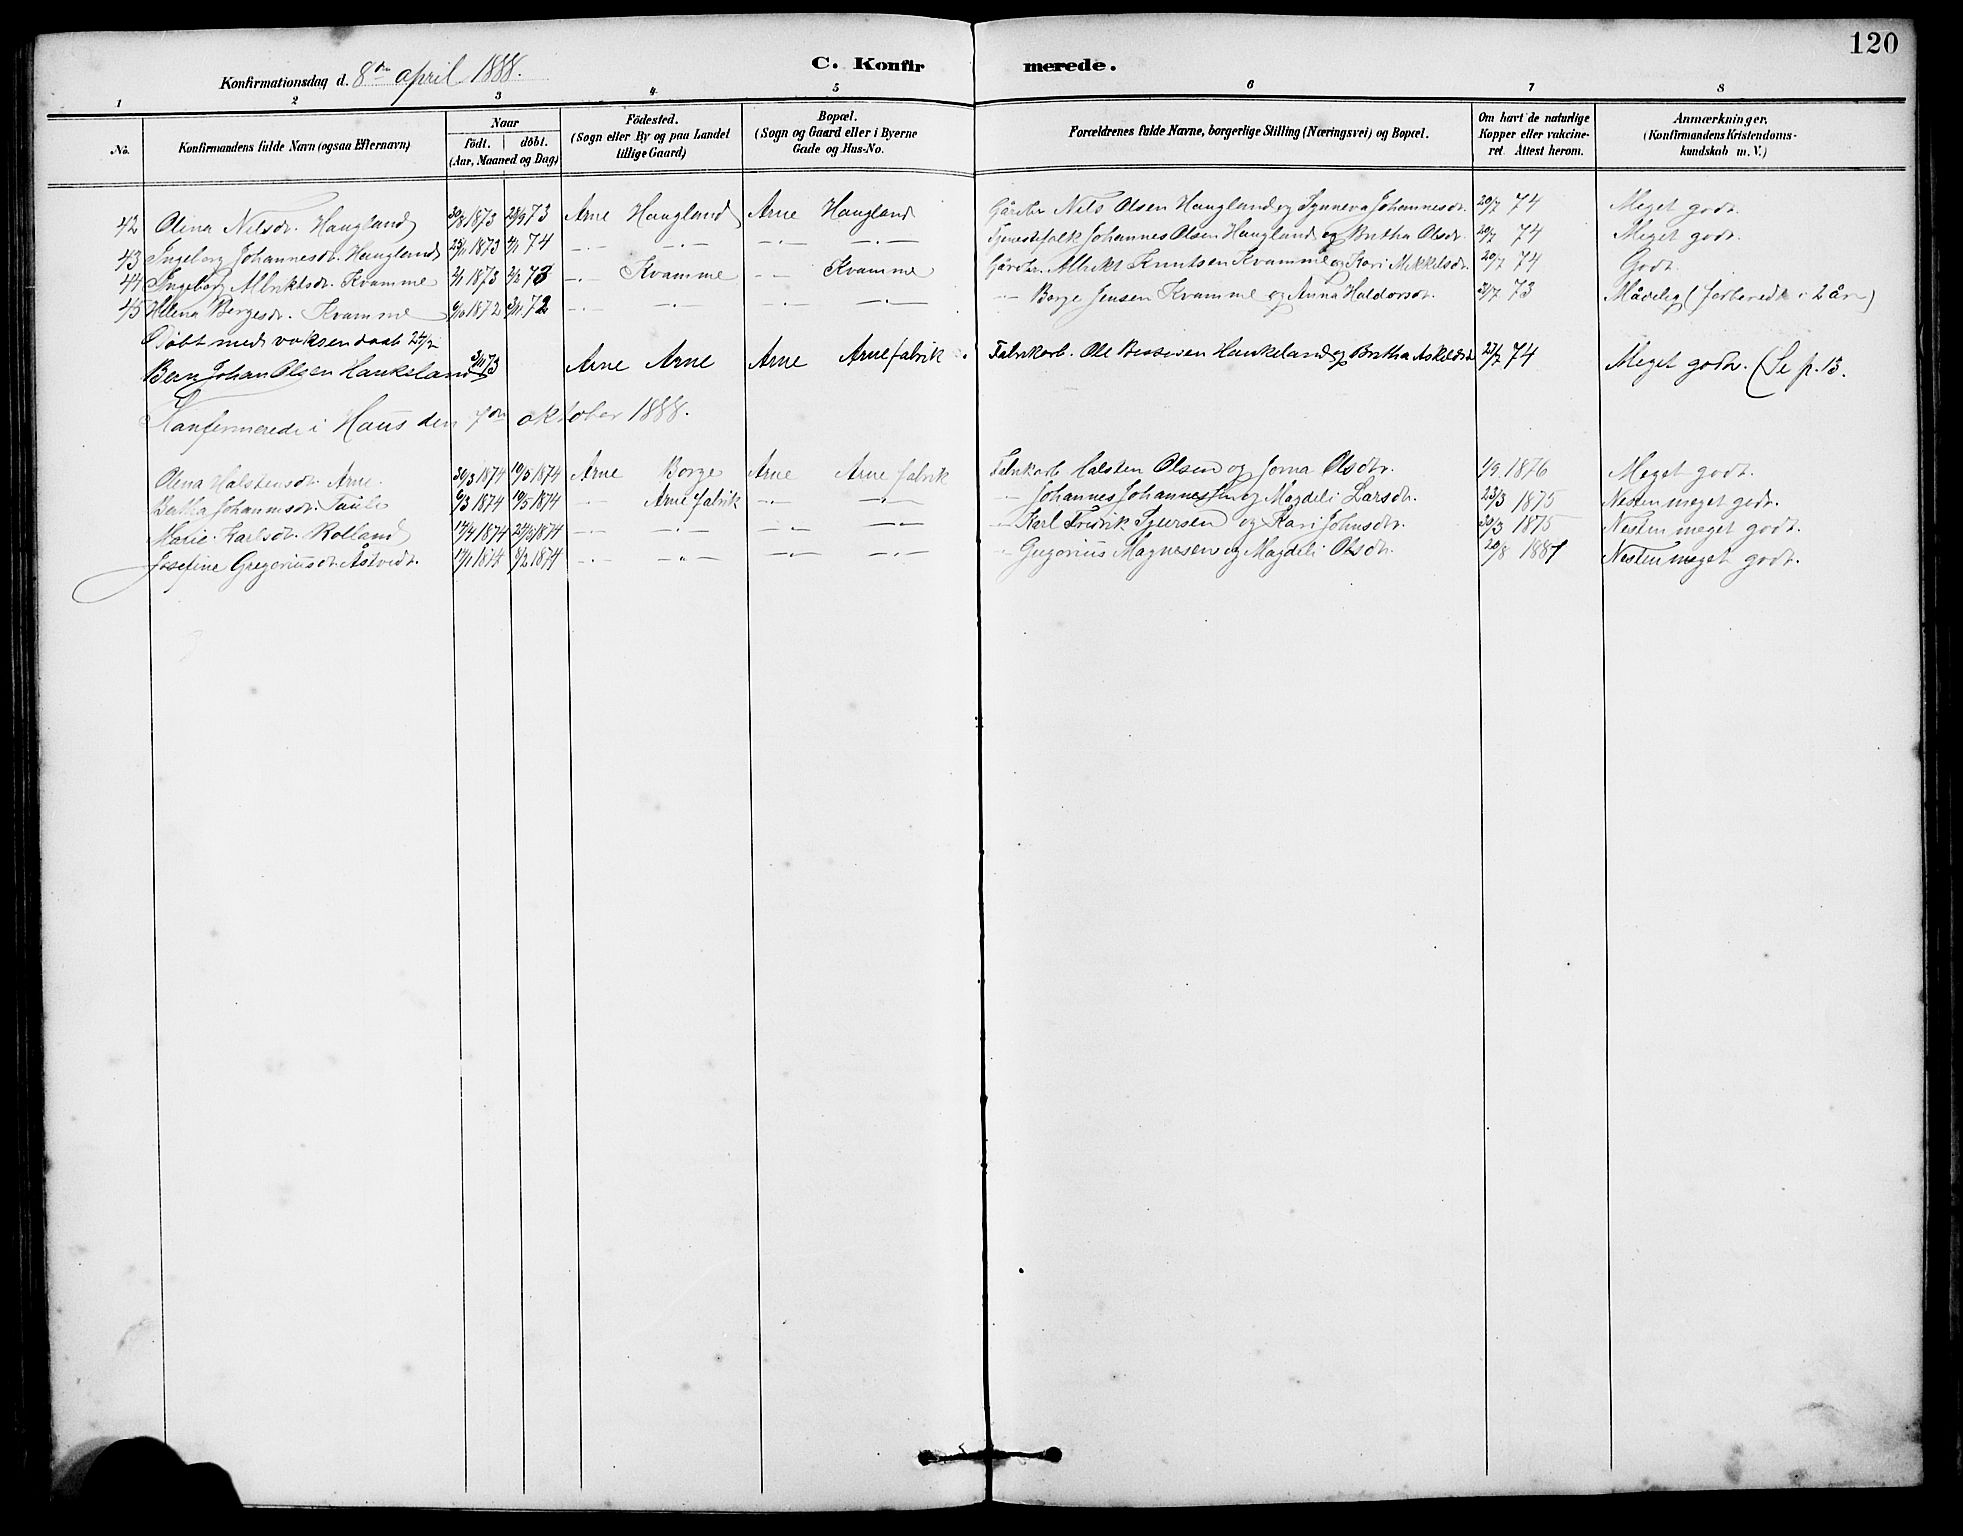 120
Konfirmationsdag d. 8de april 1888.
C. Konfirmerede.
1 2 3 4 5 6 7 8
No. Konfirmandens fulde Navn (ogsaa Efternavn) Naar födt. döbt. (Aar, Maaned og Dag) Födested. (Sogn eller By og paa Landet tillige Gaard) Bopæl. (Sogn og Gaard eller i Byerne Gade og Hus-No. Forældrenes fulde Navne, borgerlige Stilling (Næringsvei) og Bopæl. Om havt de naturlige Kopper eller vakcineret. Attest herom. Anmærkninger. (Konfirmandens Kristendomskundskab m. V.)
42 Olina Nilsdr. Haugland 30/8 1873 28/9 73 Arne Haugland Arne Haugland Gårdbr. Nils Olsen Haugland og Synneva Johannesdr. 20/7 74 Meget godt.
43 Ingeborg Johannesdr. Haugland 25/11 1873 4/1 74 -"- -"- -"- -"- Tjenestefolk Johannes Olsen Haugland og Britha Olsdr. 20/7 74 Meget godt.
44 Ingeborg Albriktsdr. Kvamme 2/1 1873 2/2 73 -"- Kvamme -"- Kvamme Gårdbr. Albrikt Knutsen Kvamme og Kari Mikkelsdr. 20/7 74 Godt.
45 Helena Børgesdr. Kvamme 6/10 1872 3/11 72 -"- -"- -"- -"- -"- Børge Jensen Kvamme og Anna Haldorsdr. 21/7 73 Mådelig (forberedt i 2 år)
Døbt med voksendaab 24/2
Bern Johan Olsen Haukeland 3/11 73 Arne Arne Arne Arne fabrik Fabrikarb. Ole Haukeland og Britha Askildsdr. 27/7 74 Meget godt. (Se p. 13.
Konfermerede i Haus den 7de oktober 1888.
Olena Halstensdr. Arne. 30/3 1874 10/5 1874 Arne Borge Arne Arne fabrik Fabrikarb. Halsten Olsen og Jorna Olsdr. 1/9. 1876 Meget godt.
Bertha Johannsdr. 6/3 1874 10/5 1874 -"- Arne fabrik -"- -"- -"- Johannes Johannessen og Magdeli Larsdr. 23/3 1875 Nesten meget godt.
Marie Karlsdr. Rolland 17/4 1874 25/5 1874 -"- -"- -"- -"- -"- Karl Fredrik og Kari Johnsdr. 30/3 1875 Nesten meget godt.
Josefine Gregoriusdr. Åstvedt. 17/1 1874 8/2 1874 -"- -"- -"- -"- -"- Gregorius Magnesen og Magdeli Olsdr. 20/8 1881 Nesten meget godt.